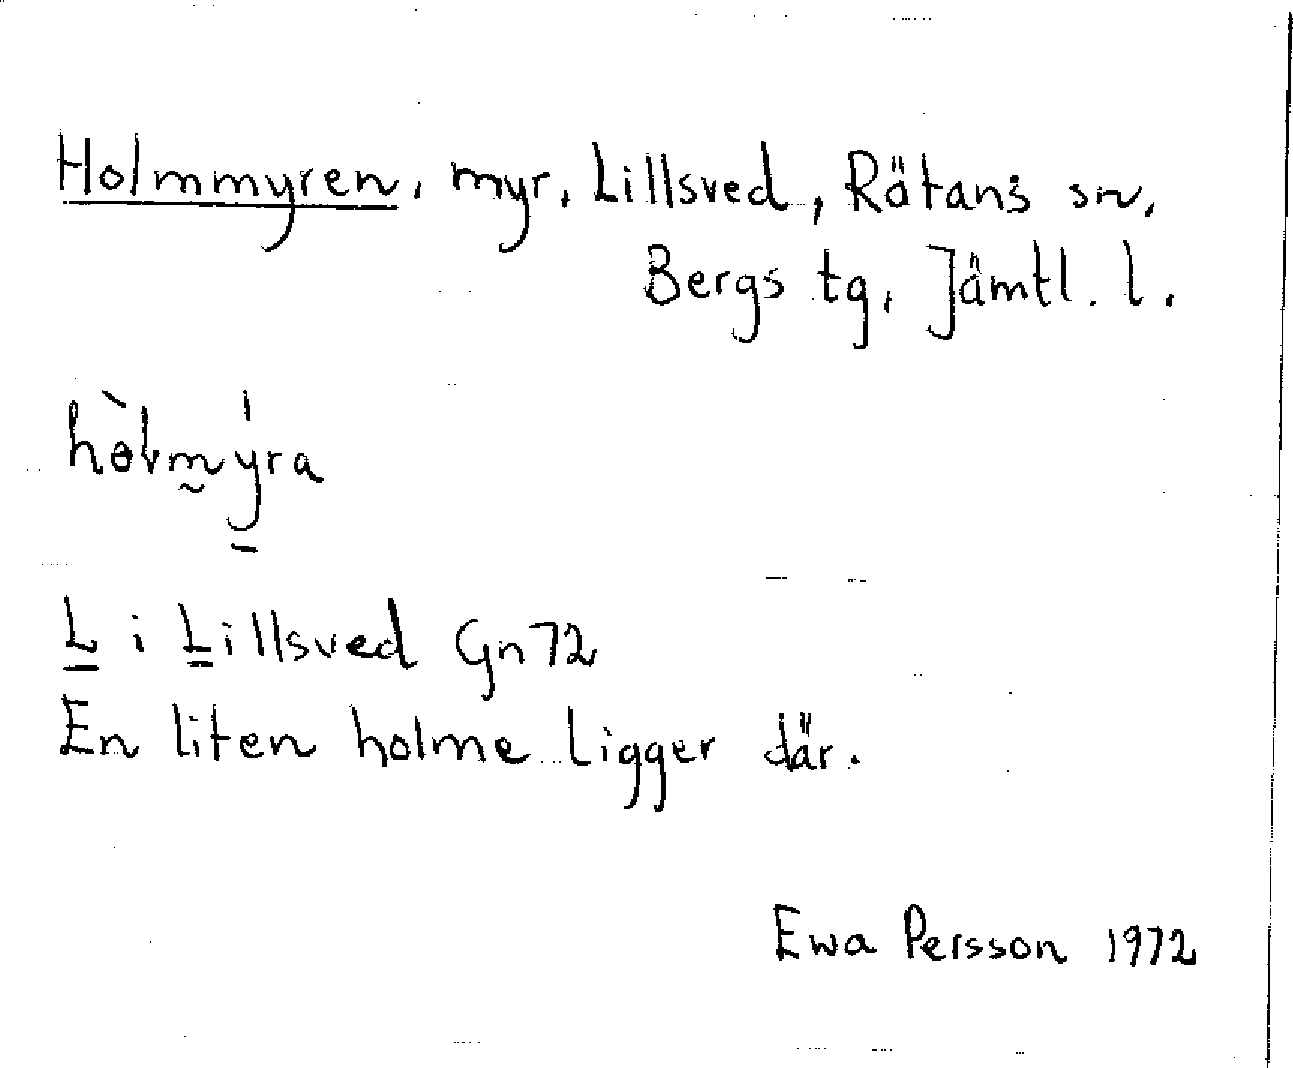 Holmmyren, myr, Lillsved, Rätans sn,
Bergs tg, Jämtl. l.
hòlmy̠ra
L i Lillsved Gn72
En liten holme ligger där.
Ewa Persson 1972